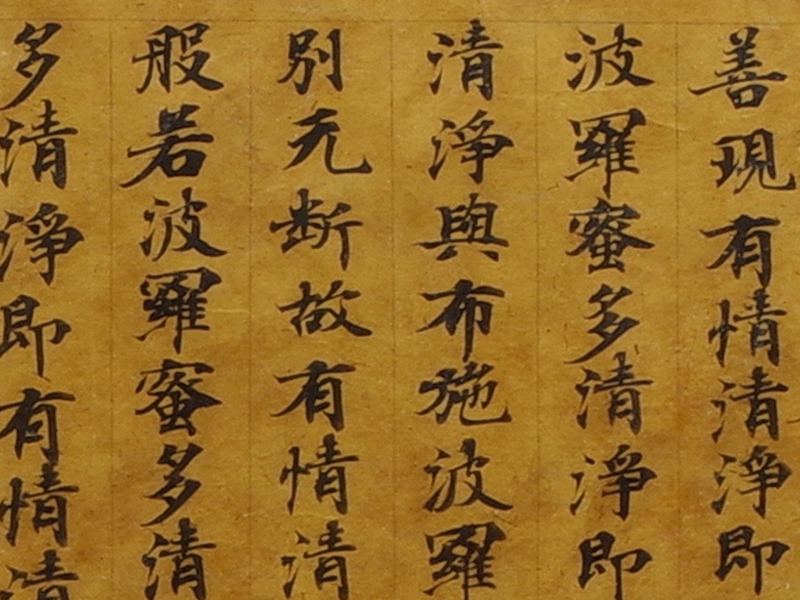 善現有情清淨即
波羅蜜多清淨即
清淨與布施波羅
別无断故有情清
般若波羅蜜多清
多清淨即有情清